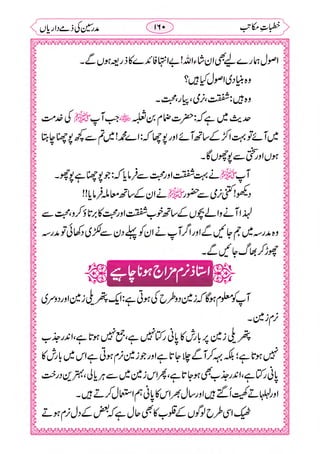 خطباتِ مکاتب
۱۶۰
مدرسین کی ذمے داریاں
اصول ہمارے لیے بھی ان شاء اللہ! بے انتہا فائدے کا ذریعہ ہوں گے۔
اصول کی بنیاد کیا ہیں؟
وہ ہیں: شفقت، نرمی، پیار، محبت۔
حدیث میں ہے کہ: حضرت ضمام بن ثعلبہ جب آپ ﷺ کی خدمت
میں آئے تو بہت اکڑ کے ساتھ آئے اور پوچھا کہ: اے محمد! میں تم سے کچھ پوچھنا چاہتا
ہوں اور سختی سے پوچھوں گا۔
آپ ﷺ نے بہت شفقت اور محبت سے فرمایا کہ: جو پوچھنا چاہتا ہے پوچھو۔
دیکھو! کتنی نرمی سے حضور ﷺ نے ان کے ساتھ معاملہ فرمایا!!
لہٰذا آنے والے بچوں کے ساتھ خوب شفقت اور محبت کا برتاؤ کرو، محبت سے
وہ مدرسہ میں جم جائیں گے اور اگر آپ نے ان کو پہلے دن سے کڑکی دکھائی تو مدرسہ
چھوڑ کر بھاگ جائیں گے۔
استاذ نرم مزاج ہونا چاہیے
آپ کو معلوم ہوگا کہ زمین دو طرح کی ہوتی ہے: ایک پتھریلی زمین اور دوسری
نرم زمین۔
پتھریلی زمین پر بارش کا پانی رکتا نہیں ہے، جمع نہیں ہوتا ہے، اندر جذب
نہیں ہوتا ہے؛ بلکہ بہہ کر آگے چلا جاتا ہے اور جو زمین نرم ہوتی ہے اس میں بارش کا
پانی رکتا ہے، اندر جذب بھی ہو جاتا ہے، پھر اس زمین سے ہریالی، بہترین درخت
اور لہلہاتے کھیت اُگتے ہیں اور سال بھر اس کا پانی ہم استعمال کرتے ہیں۔
ٹھیک اسی طرح لوگوں کے قلوب کا بھی حال ہے کہ بعض کے دل نرم ہوتے